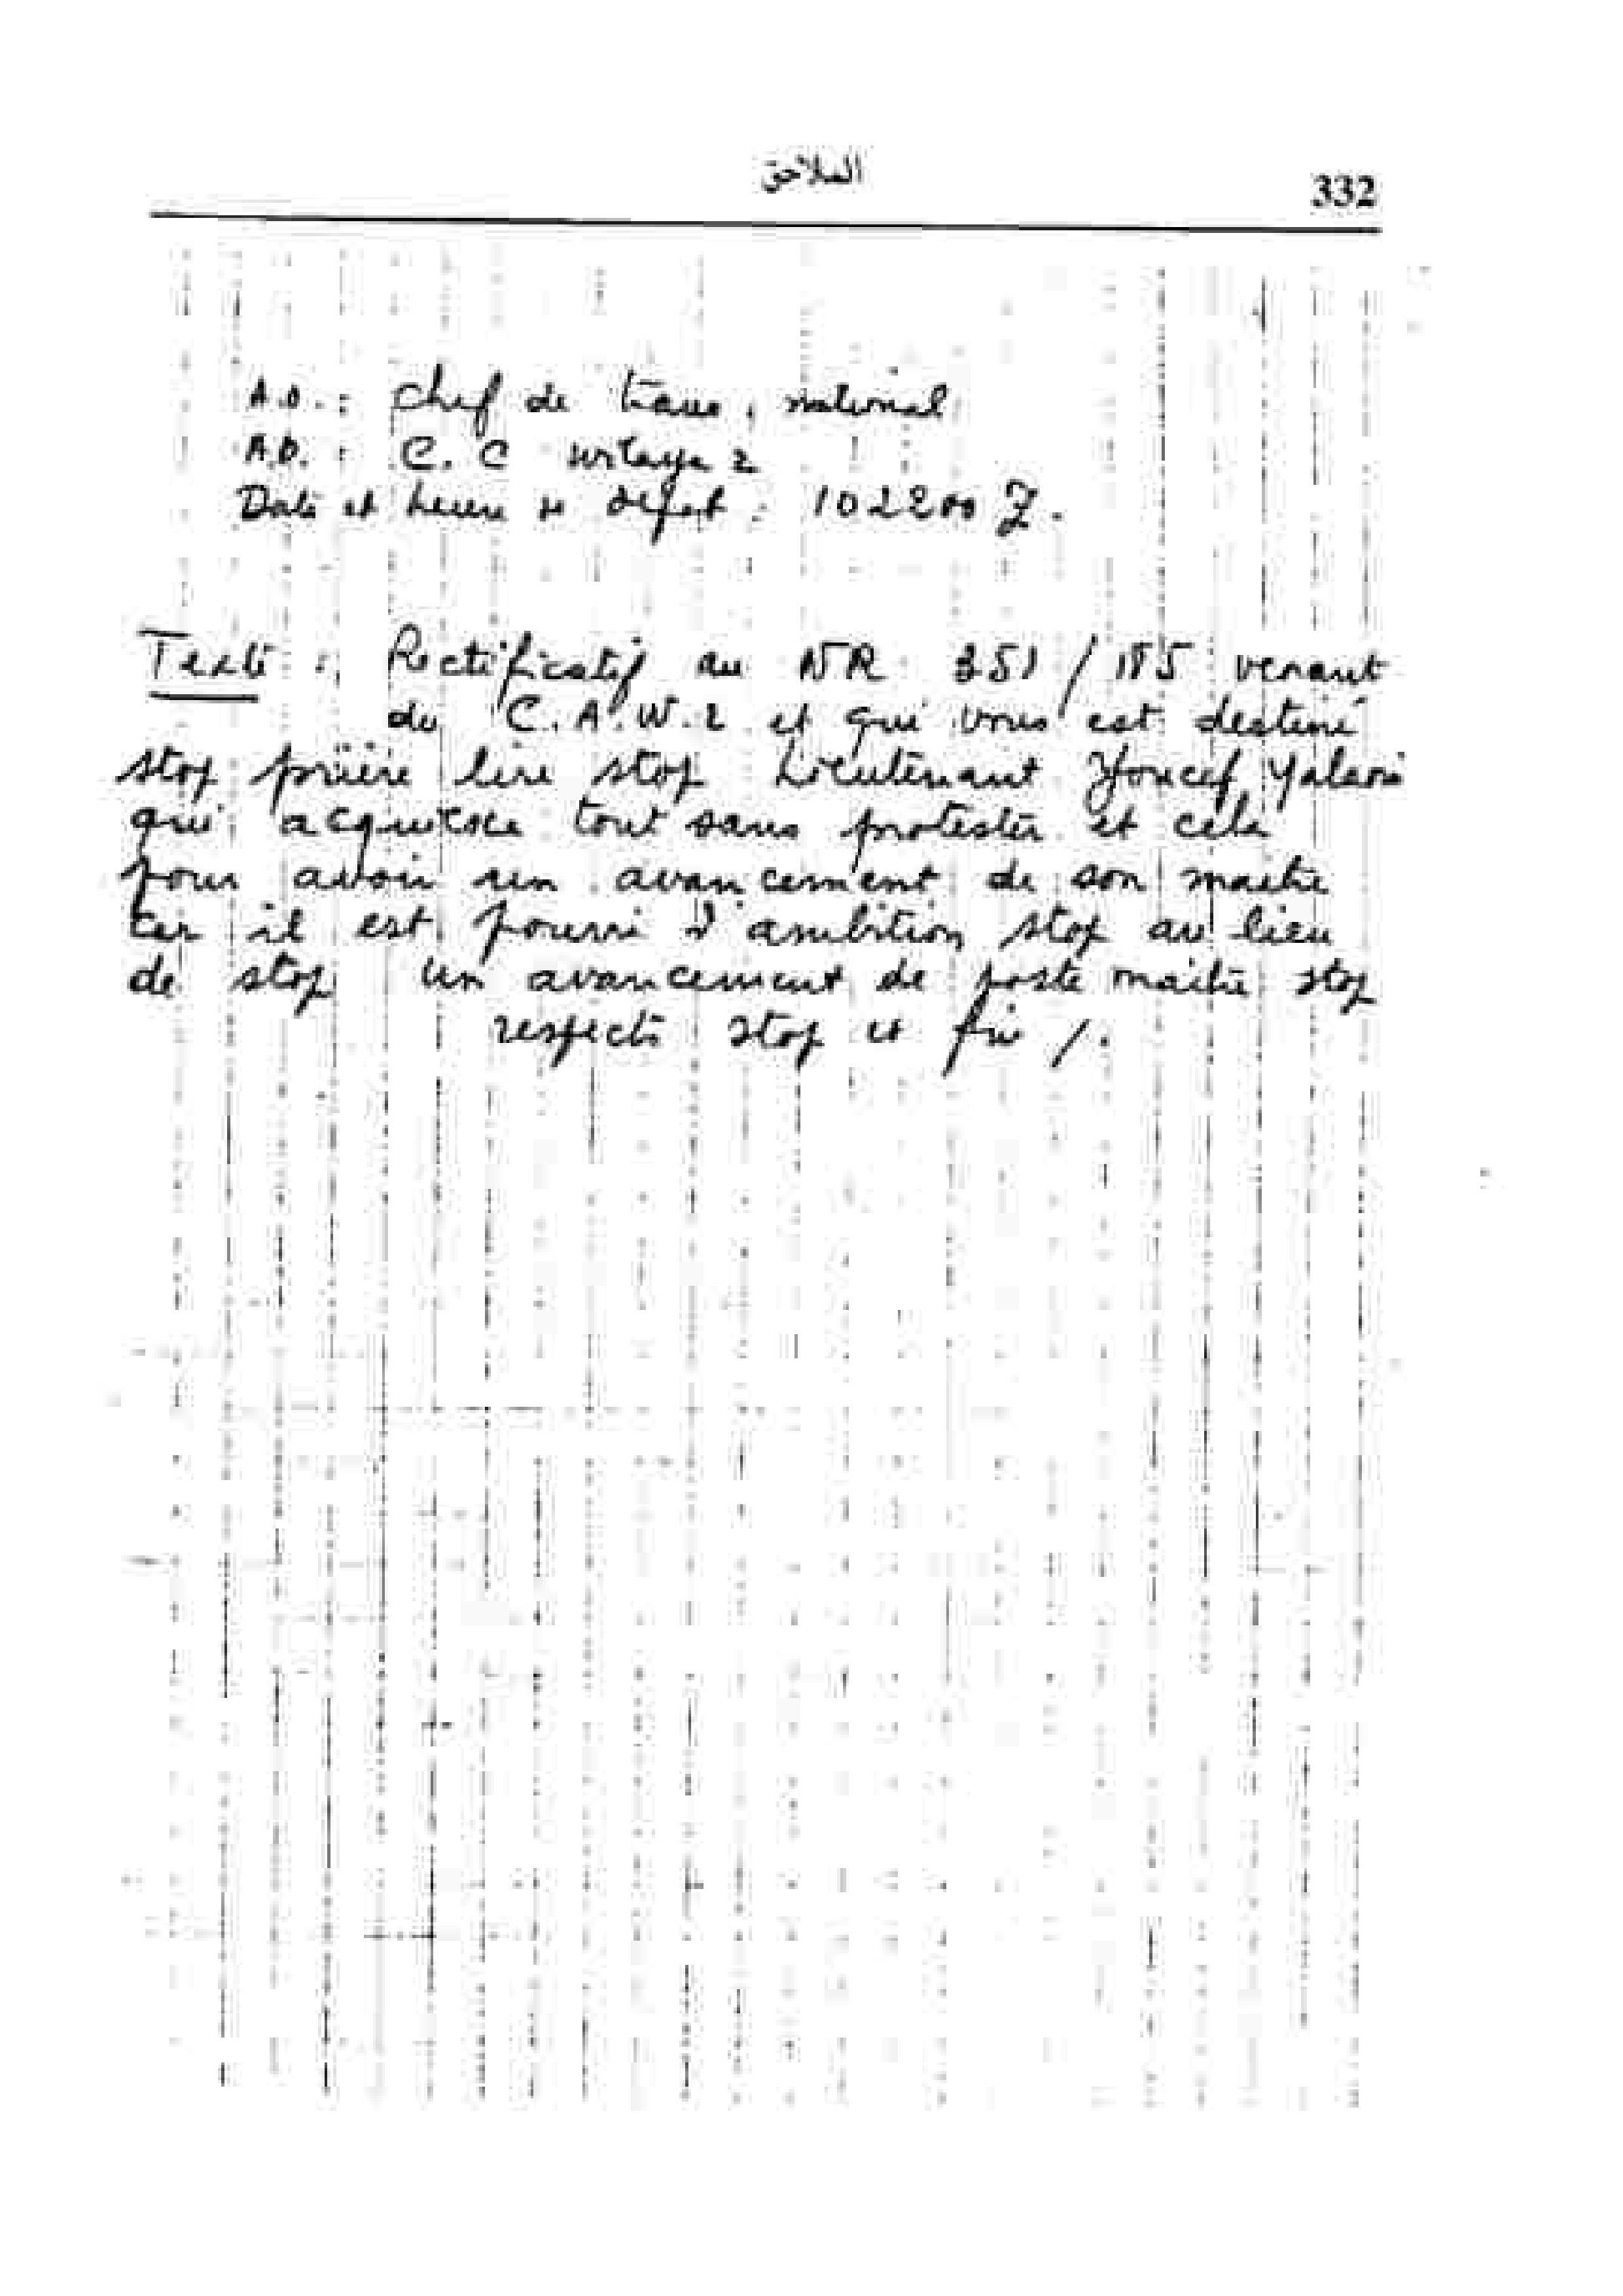 الملاحق
332
A.D. : Chef de trans. national
A.D. : C. C wilaya 2
Date et heure de départ : 102200 Z.
Texte : Rectificatif au NR 351 / 185 venant
du C.A.W.2 et qui vous est destiné
stop prière lire stop Lieutenant Youcef Yalaoui
qui acquiesce tout sans protester et cela
pour avoir un avancement de son maitre
car il est pourri d'ambition stop au lieu
de stop un avancement de poste maitre stop
respects stop et fin /.